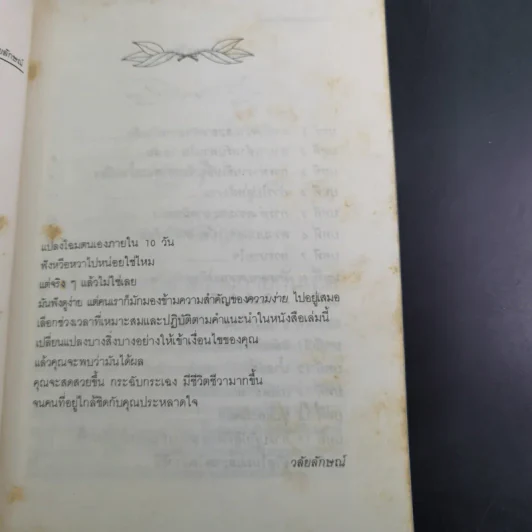 แปลงโฉมตนเองภายใน 10 วัน
ฟังหวือหวาไปหน่อยใช่ไหม
แต่จริง ๆ แล้วไม่ใช่เลย
มันฟังดูง่าย แต่คนเราก็มักมองข้ามความสำคัญของความง่าย ไปอยู่เสมอ
เลือกช่วงเวลาที่เหมาะสมและปฏิบัติตามคำแนะนำในหนังสือเล่มนี้
เปลี่ยนแปลงบางสิ่งบางอย่างให้เข้าเงื่อนไขของคุณ
แล้วคุณจะพบว่ามันได้ผล
คุณจะสดสวยขึ้น กระฉับกระเฉง มีชีวิตชีวามากขึ้น
จนคนที่อยู่ใกล้ชิดกับคุณประหลาดใจ
วลัยลักษณ์